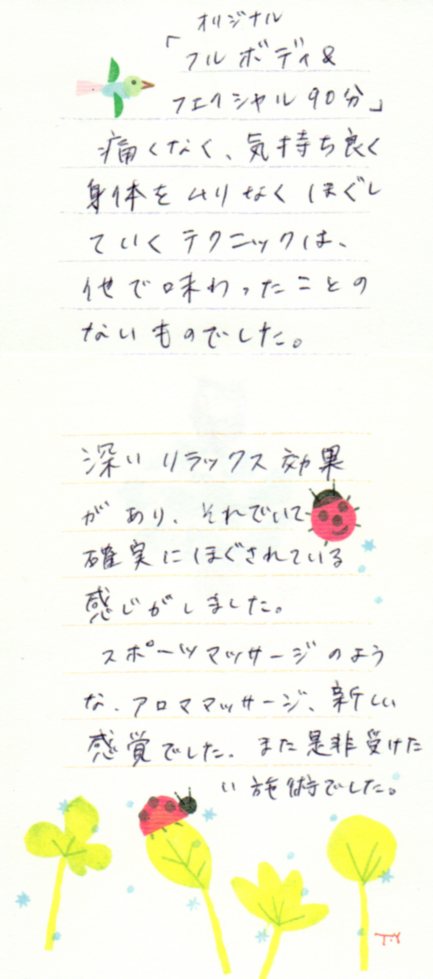 オリジナル
「フルボディ&
フェイシャル90分」
痛くなく、気持ち良く
身体をムリなくほぐし
ていくテクニックは、
他で味わったことの
ないものでした。
深いリラックス効果
があり、それでいて
確実にほぐされている
感じがしました。
スポーツマッサージのよう
な、アロママッサージ、新しい
感覚でした。また是非受けた
い施術でした。
T.Y